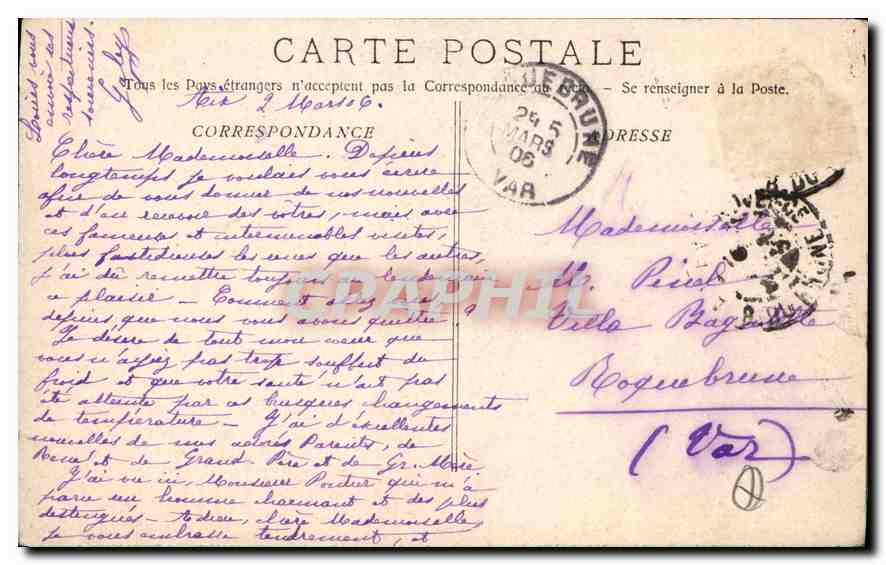 CARTE POSTALE
Tous les Pays étrangers n'acceptent pas la Correspondance au recto. - Se renseigner à la Poste.
Aix 2 Mars 06.
CORRESPONDANCE
Chère Mademoiselle. Depuis
longtemps je voulais vous écrire
afin de vous donner de nos nouvelles
et d'en recevoir des vôtres, mais avec
ces fameuses et interminables visites,
plus fastidieuses les unes que les autres,
j'ai dû remettre toujours au lendemain
ce plaisir - Comment allez vous
depuis que nous vous avons quittée ?
Je désire de tout mon cœur que
vous n'ayez pas trop souffert du
froid et que votre santé n'ait pas
été atteinte par ces brusques changements
de température - J'ai d'excellentes
nouvelles de mes Parents, de
René et de Grand Père et de Gr. Mère.
J'ai vu ici, Monsieur qui m'a
paru un homme charmant et des plus
distingués - Adieu, chère Mademoiselle
je vous embrasse tendrement, et
vous
envoie ses
respectueux
souvenirs.
Gaby
ADRESSE
Mademoiselle
Pinel
Villa Bagatelle
Roquebrune
(Var)
ROQUEBRUNE
25
MARS
06
VAR
CPAPHIL